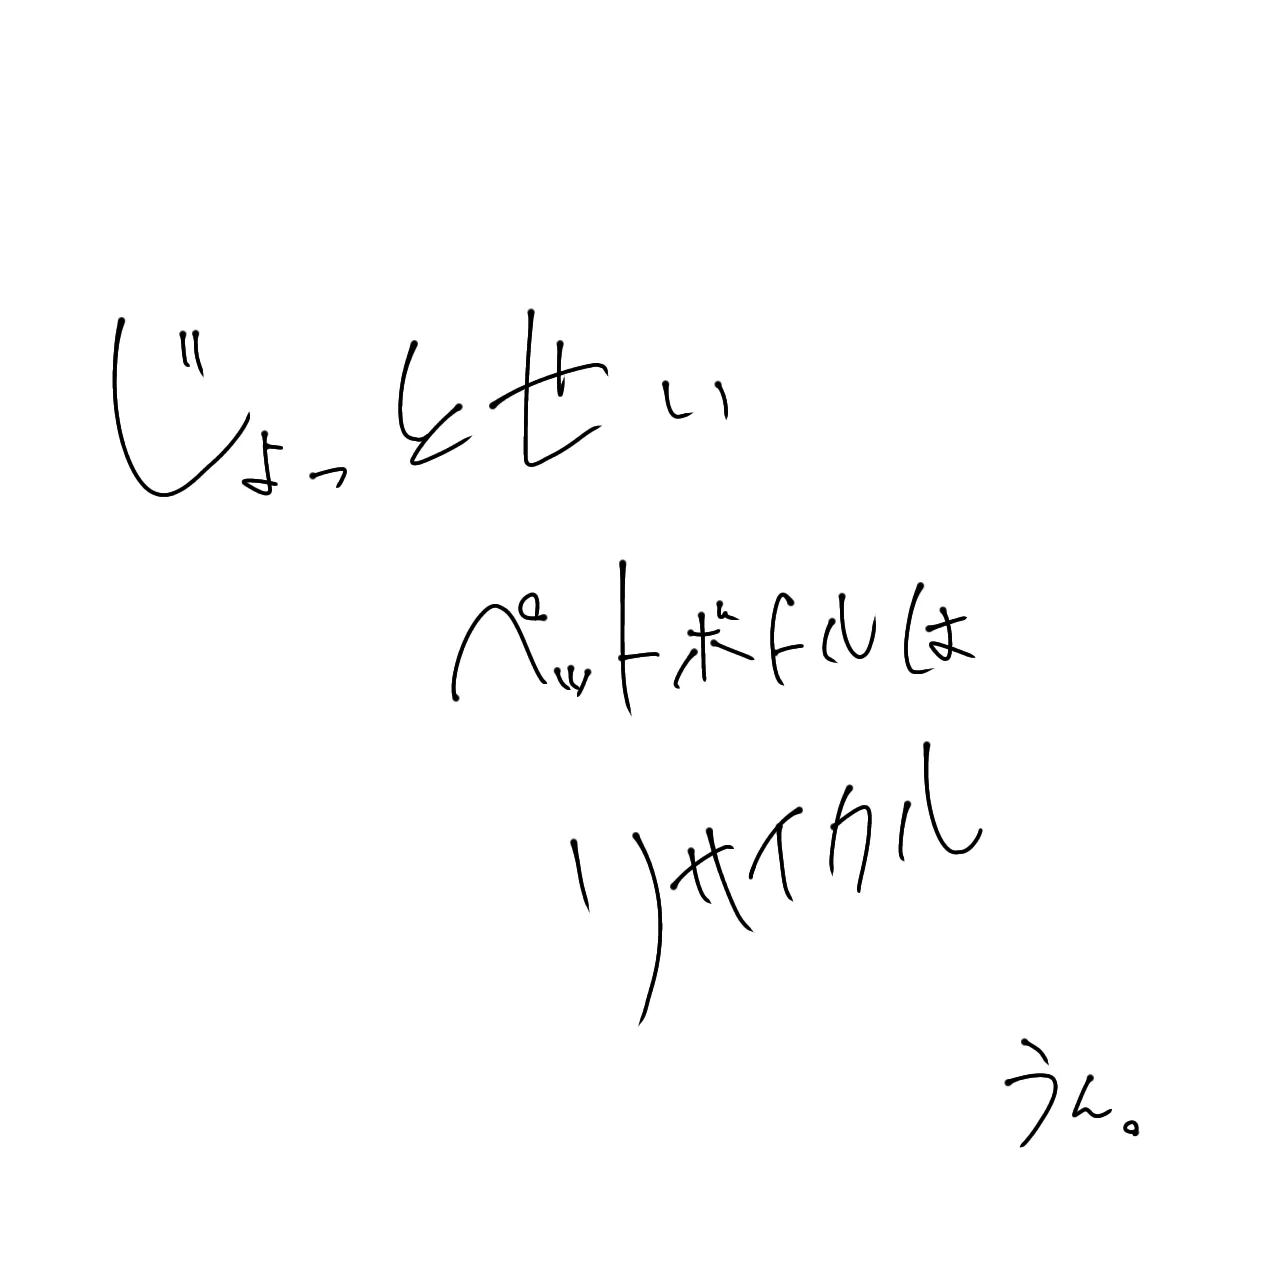 じょっとせい
ペットボトルは
リサイクル
うん。